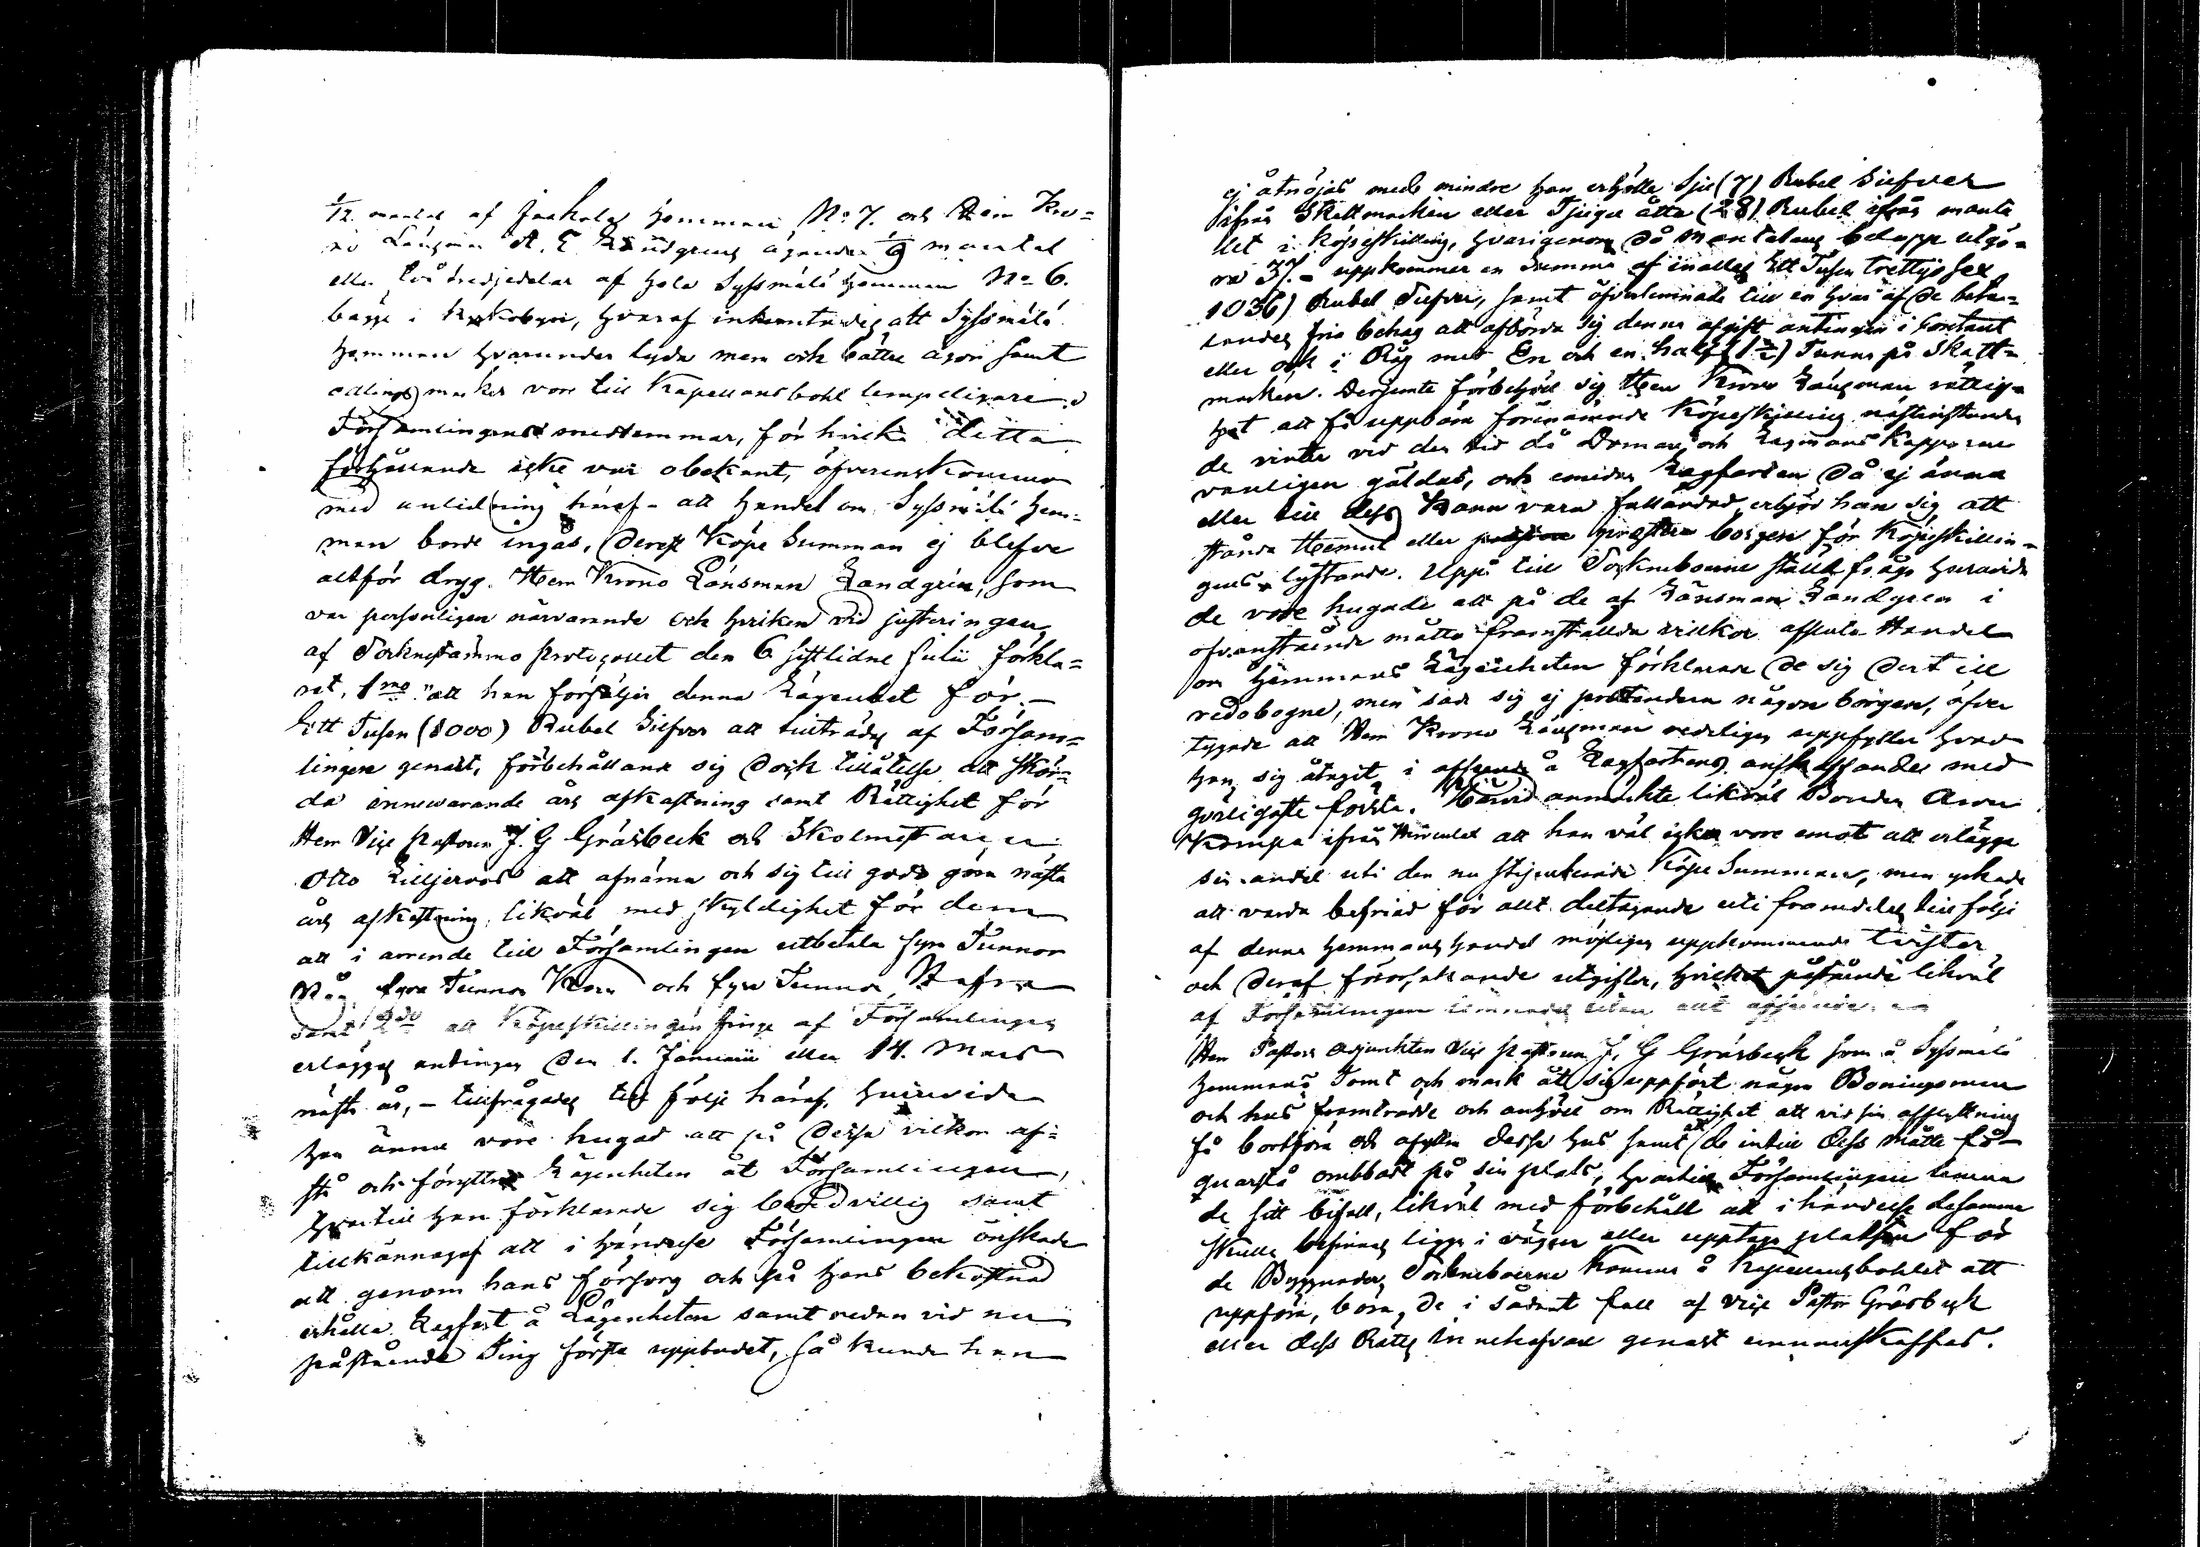 1/12 mantal af Jaakola Hemman No 7. och Herr Kro=
no Länsman A. E. Landgrens ägande 1/9 mantal
eller två tredjedelar af hela Syssmäli Hemman No 6.
bägge i Kyrkobyn, hvaraf inhemtades att Syssmäli
Hemman hvarunder lyda mera och bättre ägor samt
odlings marker vore till Kapellansbohl lempeligare.
Församlingens medlemmar, för hvilka detta
förhållande icke var obekant, öfverenskommo
med anledning häraf att Handel om Syssmäli Hem=
man borde ingås, derest Köpe Summan ej blefve
altför dryg. Herr Krono Länsman Landgren, som
var personligen närvarande och hvilken vid justeringen
af Sockne stämmo Protocollet den 6 sistlidne Julii förkla=
rat, 1mo att han försäljer denna Lägenhet för
Ett Tusen (1000) Rubel Silfver att tillträdas af Försam=
lingen genast, förbehållande sig dock tillåtelse att skör=
da innewarande års afkastning samt Rättighet för
Herr Vice Pastorn J. G Gråsbeck och Skolmästaren
Otto Lilljeroos att afnäma och sig till godo göra nästa
års afkastning, likväl med skyldighet för dem
att i arrende till Församlingen utbetala fyra Tunnor
Råg fyra Tunnor Korn och fyra Tunnor Hafra
samt 2do att Köpeskillingen finge af Församlingen
erläggas antingen den 1. Januarii eller 14. Mars
nästa år, – tillfrågades till följe häraf, huruvida
han ännu vore hugad att på dessa vilkor af=
stå och förytra Lägenheten åt Församlingen,
hvartill han förklarade sig beredvillig samt
tillkännagaf att i händelse Församlingen önskade
att genom hans försorg och på hans bekostnad
erhålla Lagfart å Lägenheten samt redan vid nu
påstående Ting första uppbudet, så kunde han
ej åtnöjas med mindre han erhölle Sju (7) Rubel Silfver
ifrån Skattmarken eller Tjugu åtta (28) Rubel ifrån manta
let i Köpeskilling, hvarigenom då Mantalens belopp utgö=
ra 37. – uppkommer en Summa af inalles Ett Tusen trettijo sex
1036) Rubel Silfver, samt öfverlemnade till en hvar af de beta=
landes fria behag att afbörda sig denna afgift antingen i Contant
eller ock i Råg med En och en half (1 1/2) Tunna på Skatt=
marken. Dessemte förbehöll sig Herr Krono Länsman rättig=
het att få uppbära förenämnde Köpeskilling nästinstundan
de vinter vid den tid då Domare och Lagmans Kapporne
vanligen gäldas, och emedan Lagfarten då ej ännu
eller till dess Kunn vara fulländad erbjöd han sig att
ställa Hemul eller borgen för Köpeskillin=
gens lyftande. Uppå till Sockneboerne ställd fråga huruvida
de vore hugade att på de af Länsman Landgren i
ofvanstående måtto framställda vilkor afsluta Handel
om Hemmans Lägenheten förklarade de sig dertill
redobogne, men sade sig ej prætendera någon borgen, öfver
tygade att Herr Krono Länsman redeligen uppfyller hvad
han sig åtagit i afseende å Lagfartens anskaffande med
görligaste första. Härvid anmärkte likväl Bonden Aron
Kömpa ifrån att han väl icke vore emot att erlägga
sin andel uti den nu stipulerade Köpe Summan, men yrkade
att varda befriad för allt deltagande uti framdeles till följe
af denna Hemmans handel möjligen uppkommande tvister
och deraf förorsakande utgifter, hvilket påstående likväl
af Församlingen lemnades utan allt afseende.
Herr Pastors Adjunkten Vice Pastorn J. G Gråsbeck som å Syssmäli
Hemmans Tomt och mark åt sig uppfört några Boningsrum
och hus framträdde och anhöll om Rättighet att vid sin afflyttning
få bortföra och afyttra dessa hus samt att de intill dess måtte få
qvarstå orubbade på sin plats, hvartill Församlingen lemna
de sitt bifall, likväl med förbehåll att i händelse desamma
skulle befinnas ligga i vägen eller upptaga platsen för
de Byggnader Socknebоerne komma å Kapellansbohlet att
uppföra, böra de i sådant fall af Vice Pastor Gråsbeck
eller dess Rätts Innehafvare genast undanskaffas.